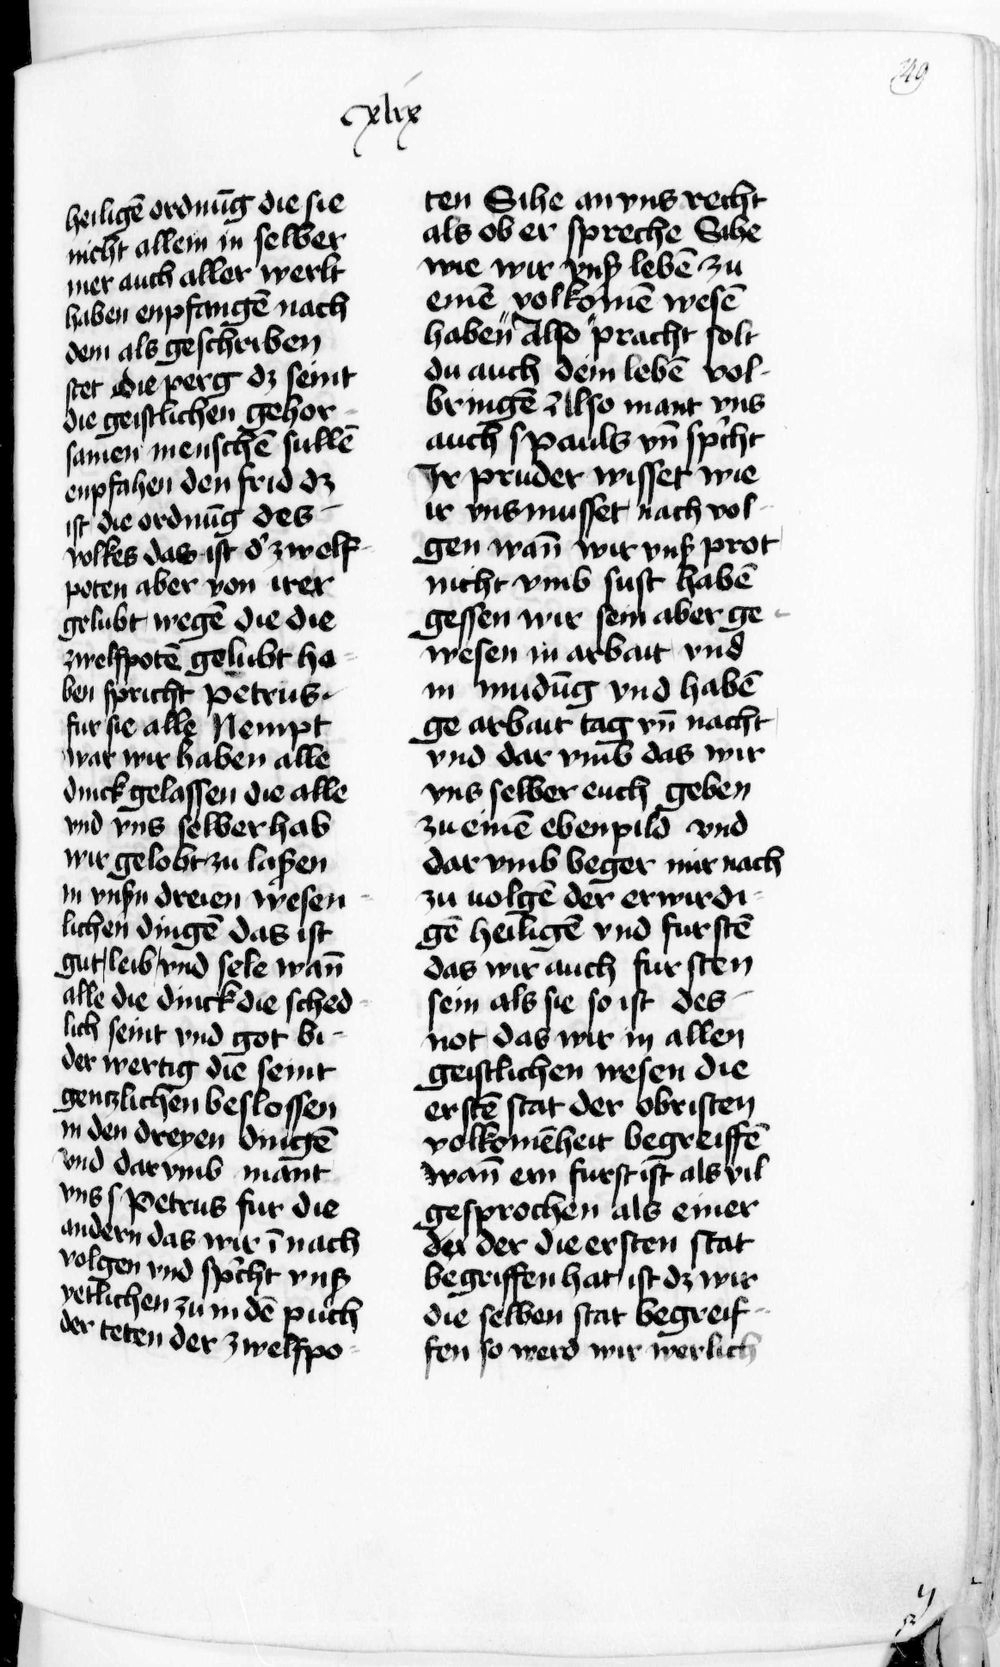 149
cxlix
heiligē ordnūg die sie
nicht allein in selber
mer auch aller werlt
haben enpfangē nach
dem als geschriben
stet die perg dz seint
die geistlichen gehor-
samen menschē sullē
enpfahen den frid dz
ist die ordnūg des-
volkes das ist d' zwelf-
poten aber von irer
gelubt wegē die die
zwelfpotē gelubt ha-
ben spricht petrus
fur sie alle Nempt
war wir haben alle
dinck gelassen die alle
vnd vns selber hab
wir gelobt zu laßen
in vnßn dreien wesen-
lichen dingē das ist
gut/leib/vnd sele wañ
alle die dinck die sched-
lich seint vnd got bi-
der wertig die seint
gentzlichen beslossen
in den dreyen dingē
vnd dar vmb mant
vns s Petrus fur die
andern das wir ī nach
volgen vnd sp'cht vnß
yetlichen zu in dē puch
der teten der zwelfpo-
ten Sihe an vns recht
als ob er spreche Sihe
wie wir vnß lebē zu
einē volkomē wesē
haben" Also "pracht solt
du auch dein lebē vol-
bringē Also mant vns
auch s Pauls vñ sp'cht
Ir pruder wisset wie
ir vns musset nach vol-
gen wañ wir vnß prot
nicht vmb sust habē
gessen wir sein aber ge-
wesen in arbait vnd
in mudūg vnd habē
ge arbait tag vñ nacht
vnd dar vmb das wir
vns selber euch geben
zu einē ebenpild vnd
dar vmb beger mir nach
zu uolgē der erwirdi-
gē heiligē vnd furstē
das wir auch fursten
sein als sie so ist des-
not das wir in allen
geistlichen wesen die
erstē stat der obristen
volkomēheit begreiffē
wañ ein furst ist als vil
gesprochen als einer
der der die ersten stat
begriffen hat ist dz wir
die selben stat begreif-
fen so werd wir werlich